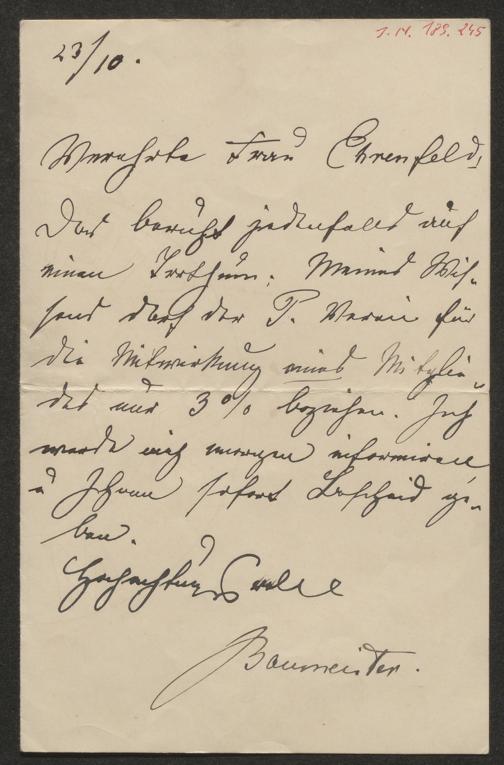 I.N. 189.245
23/10.
Verehrte Frau Ehrenfeld,
Das beruht jedenfalls auf
einen Irrthum. Meines Wis-
sens darf der P. Verein für
die Mitwirkung eines Mitglie-
des nur 3% beziehen. Ich
werde mich morgen informiren
u Ihnen sofort Bescheid ge-
ben.
Hochachtungsvoll
Baumeister.